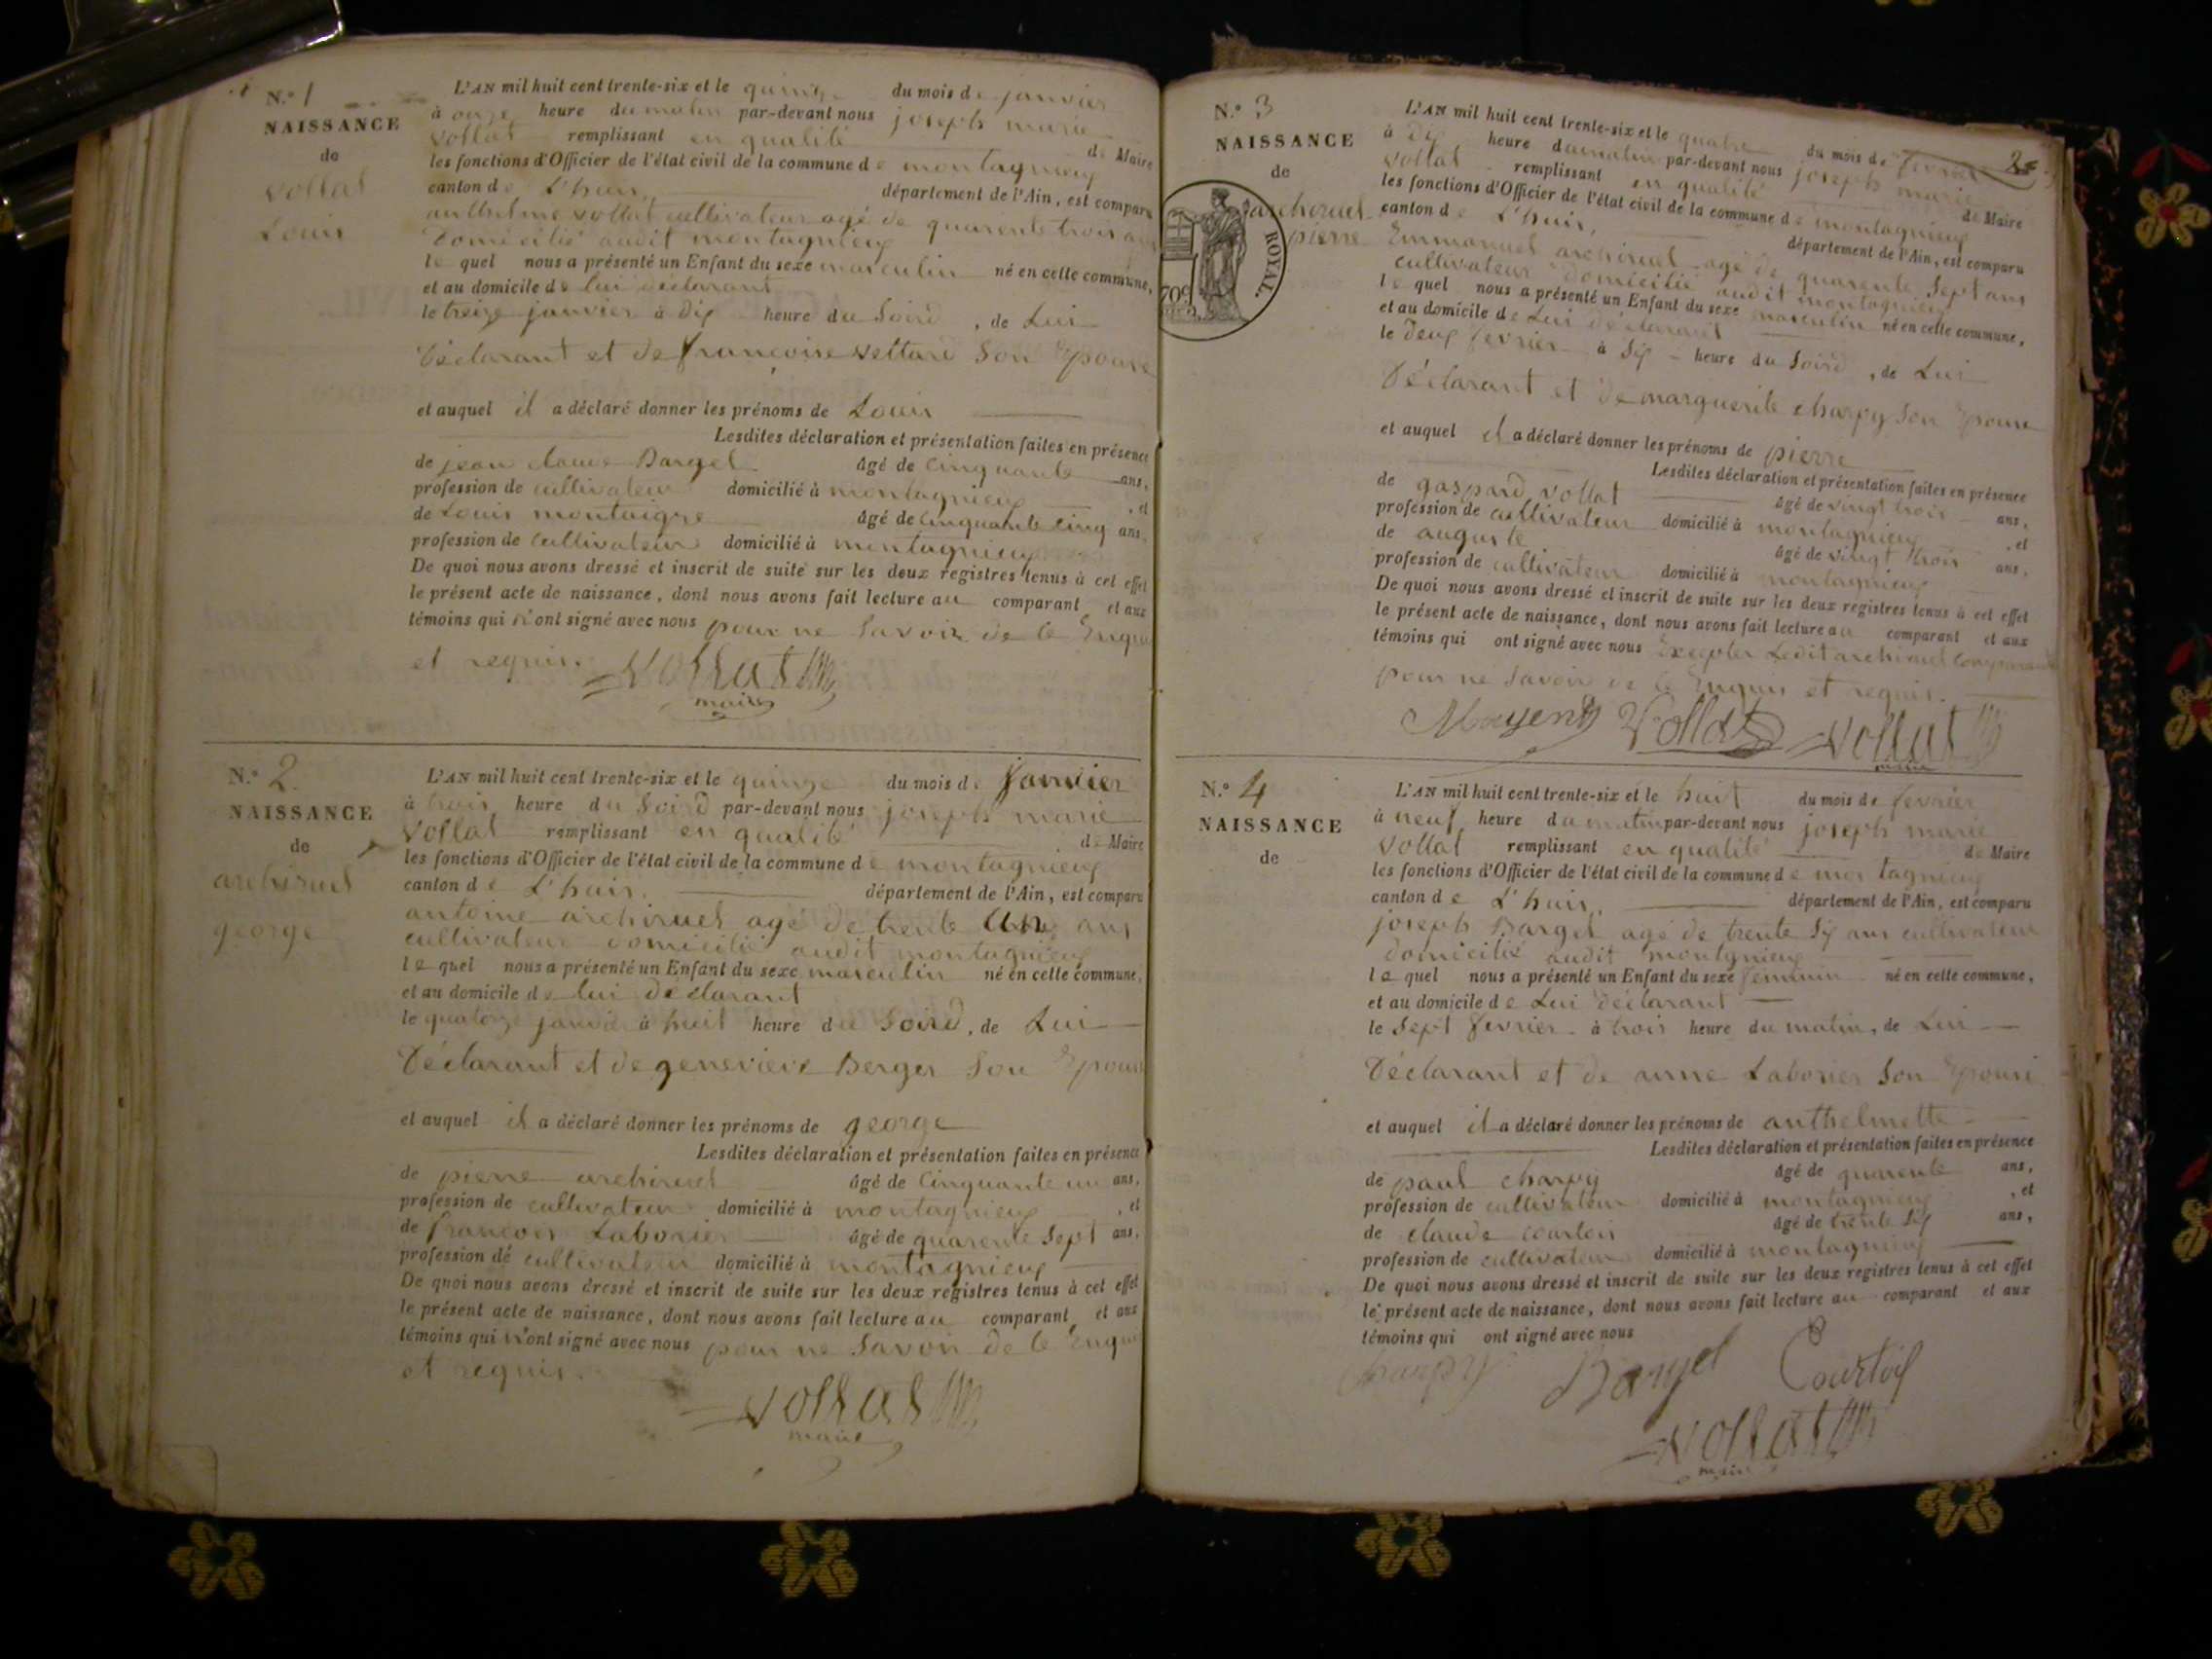 N.º 1
NAISSANCE
de
Vollat
Louis
L'AN mil huit cent trente-six et le quinze du mois de janvier
à onze heure du matin par-devant nous joseph marie
Vollat remplissant en qualité de Maire
les fonctions d'Officier de l'état civil de la commune de montagnieux
canton de L'huis, département de l'Ain, est comparu
anthelme vollat cultivateur agé de quarente trois ans
Domicilié audit montagnieux
le quel nous a présenté un Enfant du sexe masculin né en cette commune,
et au domicile de lui déclarant
le treize janvier à dix heure du Soird, de Lui
Déclarant et de françoise Son Epouse
et auquel il a déclaré donner les prénoms de Louis
Lesdites déclaration et présentation faites en présence
de jean claude Bargel âgé de Cinquante ans,
profession de cultivateur domicilié à montagnieux, et
de Louis montaigre âgé de Cinquante cinq ans,
profession de Cultivateur domicilié à montagnieux
De quoi nous avons dressé et inscrit de suite sur les deux registres tenus à cet effet
le présent acte de naissance, dont nous avons fait lecture au comparant et aux
témoins qui n'ont signé avec nous pour ne Savoir de le Enqui
et requis. Vollat
maire
N.º 2
NAISSANCE
de
archiruel
george
L'AN mil huit cent trente-six et le quinze du mois de janvier
à trois heure du Soird par-devant nous joseph marie
Vollat remplissant en qualité de Maire
les fonctions d'Officier de l'état civil de la commune de montagnieux
canton de L'huis, département de l'Ain, est comparu
antoine archiruel agé de trente un ans
cultivateur domicilié audit montagnieux
le quel nous a présenté un Enfant du sexe masculin né en cette commune,
et au domicile de lui déclarant
le quatorze janvier à huit heure du Soird, de Lui
Déclarant et de genevieve Berger Son Epouse
et auquel il a déclaré donner les prénoms de george
Lesdites déclaration et présentation faites en présence
de pierre archiruel âgé de Cinquante un ans,
profession de cultivateur domicilié à montagnieux, et
de françois Laborier âgé de quarente Sept ans,
profession de cultivateur domicilié à montagnieux
De quoi nous avons dressé et inscrit de suite sur les deux registres tenus à cet effet
le présent acte de naissance, dont nous avons fait lecture au comparant et aux
témoins qui n'ont signé avec nous pour ne Savoir de le Enqui
et requis.
Vollat
maire
2
N.º 3
NAISSANCE
de
archiruel
pierre
ROYAL.
70c
L'AN mil huit cent trente-six et le quatre du mois de fevrier
à Dix heure du matin par-devant nous joseph marie
Vollat remplissant en qualité de Maire
les fonctions d'Officier de l'état civil de la commune de montagnieux
canton de L'huis, département de l'Ain, est comparu
Emmanuel archiruel agé de quarente Sept ans
cultivateur Domicilié audit montagnieux
le quel nous a présenté un Enfant du sexe masculin né en cette commune,
et au domicile de Lui Déclarant
le Deux fevrier à Six heure du Soird, de Lui
Déclarant et de marguerite charpy Son Epouse
et auquel il a déclaré donner les prénoms de pierre
Lesdites déclaration et présentation faites en présence
de gaspard vollat âgé de vingt trois ans,
profession de cultivateur domicilié à montagnieux, et
de auguste âgé de vingt trois ans,
profession de cultivateur domicilié à montagnieux
De quoi nous avons dressé et inscrit de suite sur les deux registres tenus à cet effet
le présent acte de naissance, dont nous avons fait lecture au comparant et aux
témoins qui ont signé avec nous Excepter Ledit archiruel Comparant
pour ne Savoir de le Enquis et requis.
Vollat Vollat
maire
N.º 4
NAISSANCE
de
L'AN mil huit cent trente-six et le huit du mois de fevrier
à neuf heure du matin par-devant nous joseph marie
Vollat remplissant en qualité de Maire
les fonctions d'Officier de l'état civil de la commune de montagnieux
canton de L'huis, département de l'Ain, est comparu
joseph Bargel agé de trente Six ans cultivateur
domicilié audit montgnieux
le quel nous a présenté un Enfant du sexe feminin né en cette commune,
et au domicile de Lui déclarant
le Sept fevrier à trois heure du matin, de Lui
Déclarant et de anne Laborier Son Epouse
et auquel il a déclaré donner les prénoms de anthelmette
Lesdites déclaration et présentation faites en présence
de paul charpy âgé de quarente ans,
profession de cultivateur domicilié à montagnieux, et
de claude courtois âgé de trente Six ans,
profession de cultivateur domicilié à montagnieux
De quoi nous avons dressé et inscrit de suite sur les deux registres tenus à cet effet
le présent acte de naissance, dont nous avons fait lecture au comparant et aux
témoins qui ont signé avec nous
Charpy Bargel Courtois
Vollat
maire